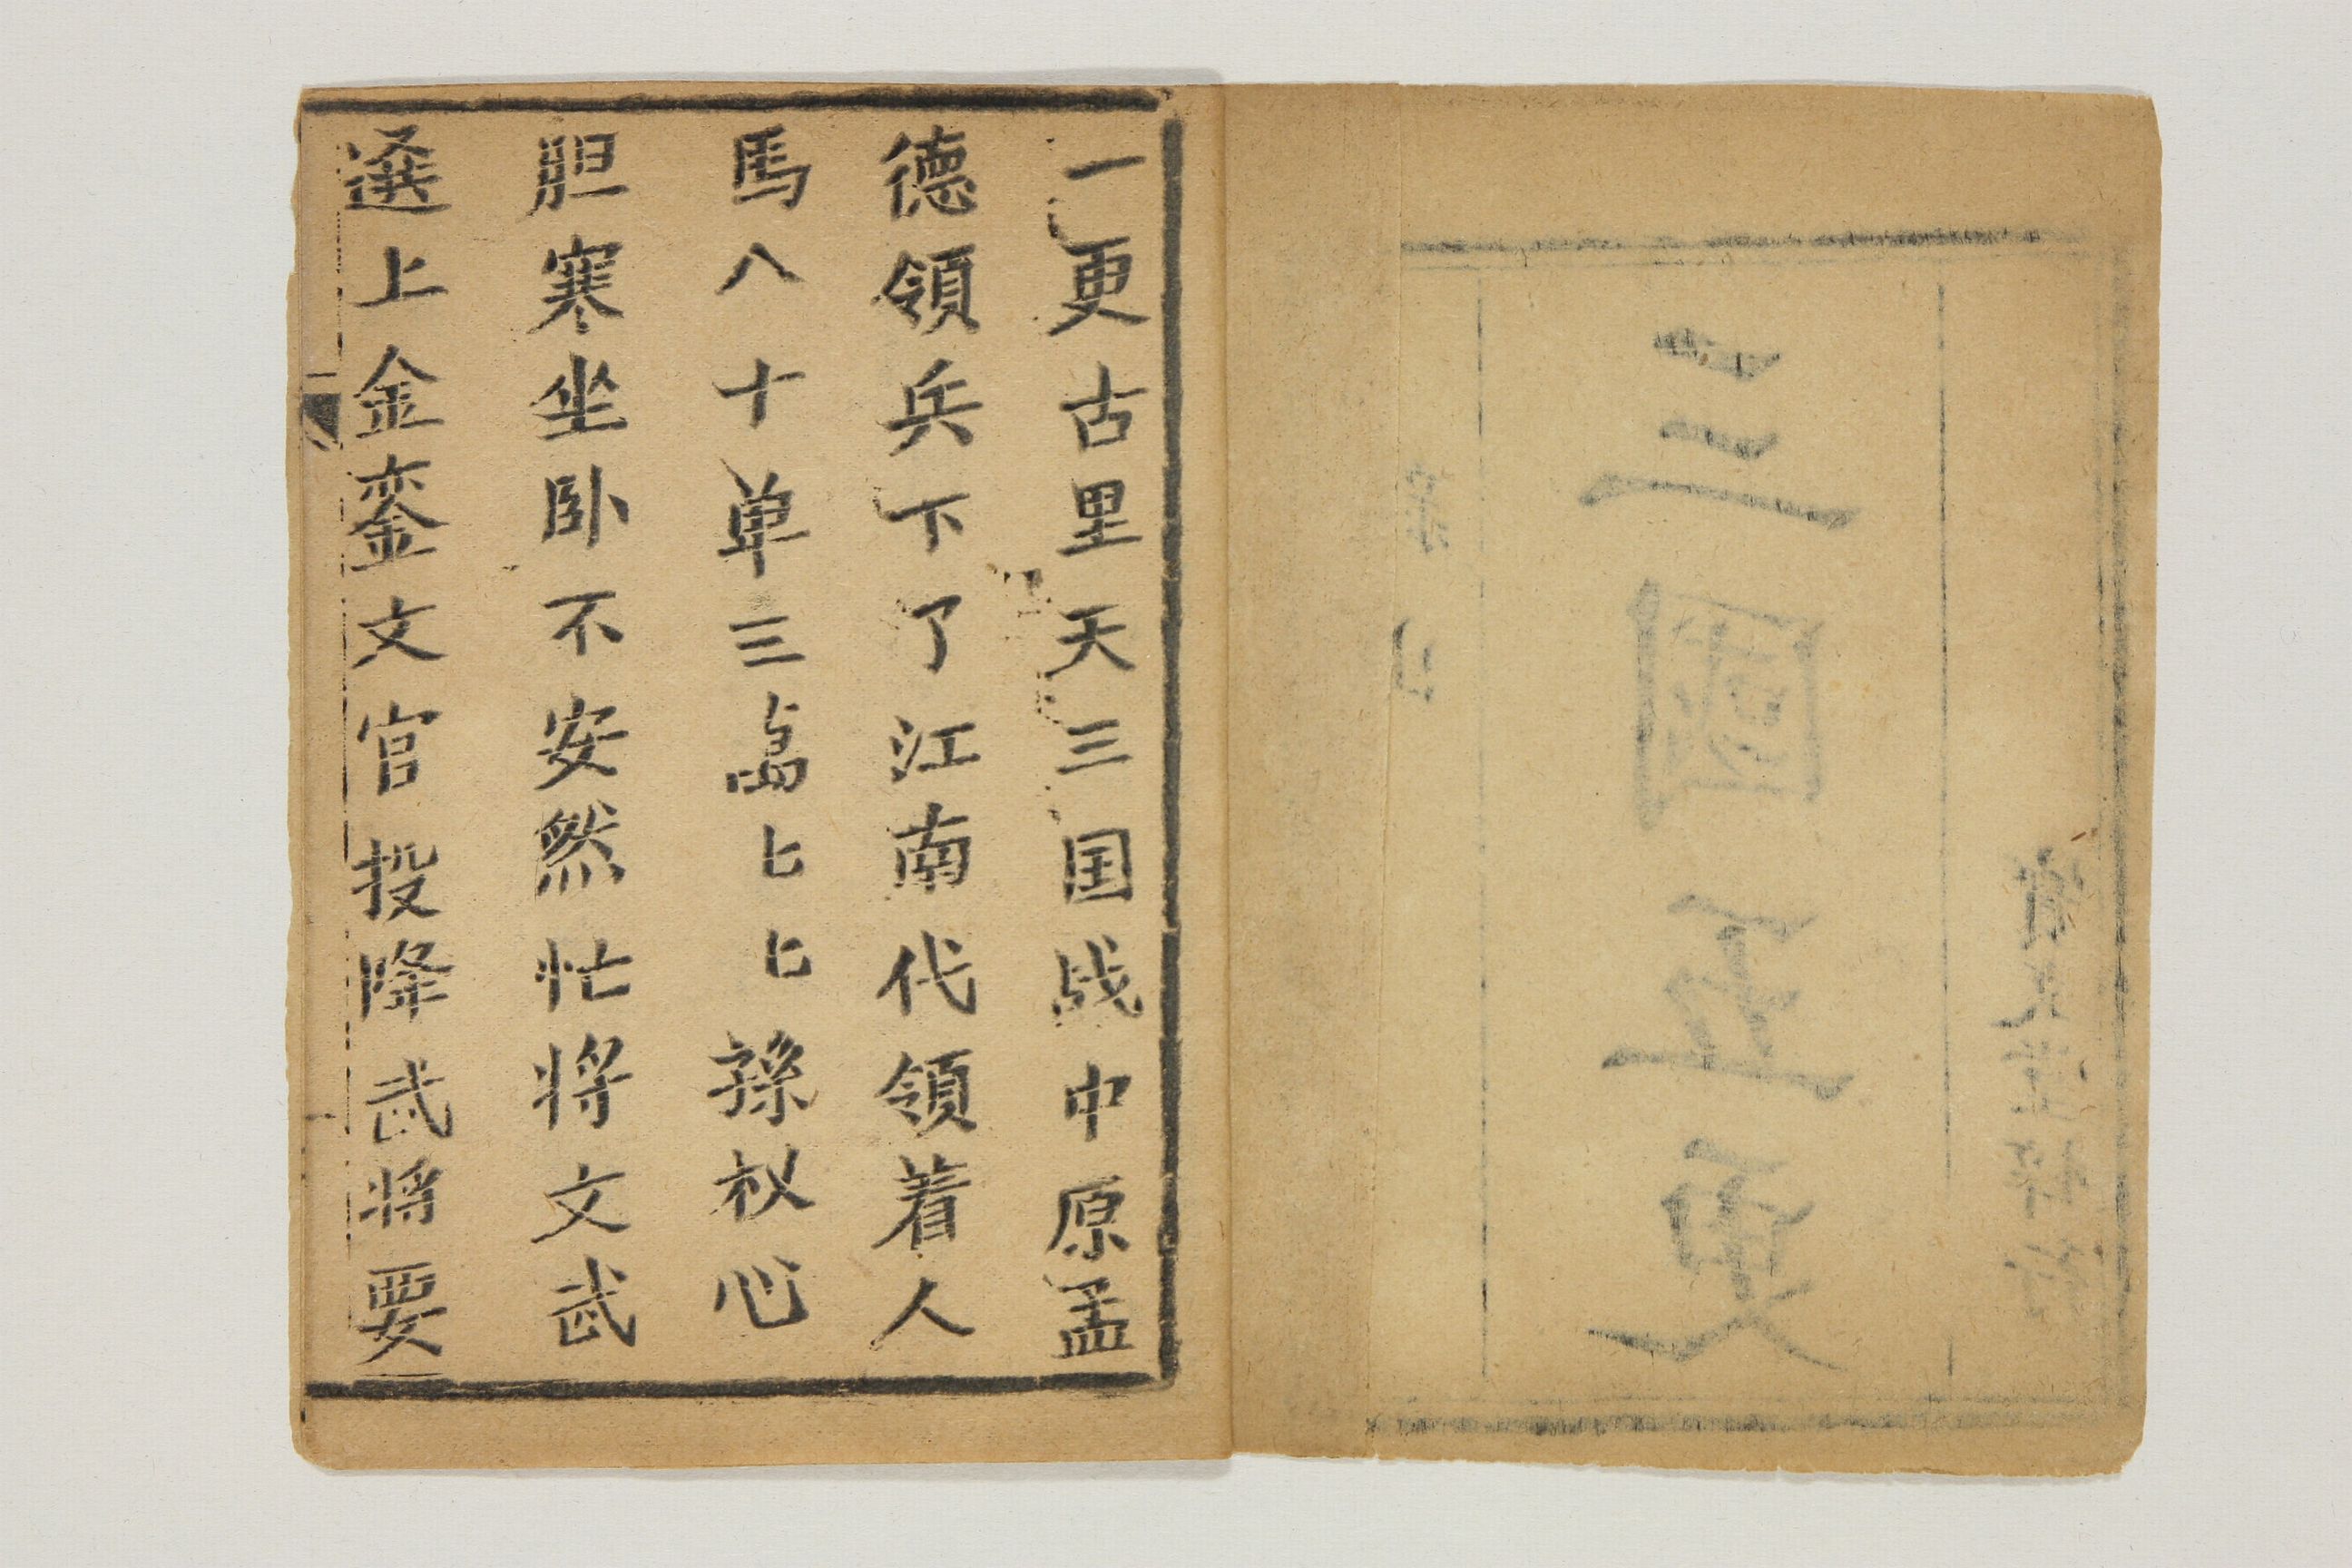 三國五更
一更古里天三国战中原孟
德領兵下了江南代領着人
馬八十单三卨匕匕孫权心
胆寒坐卧不安然忙将文武
選上金銮文官投降武将要